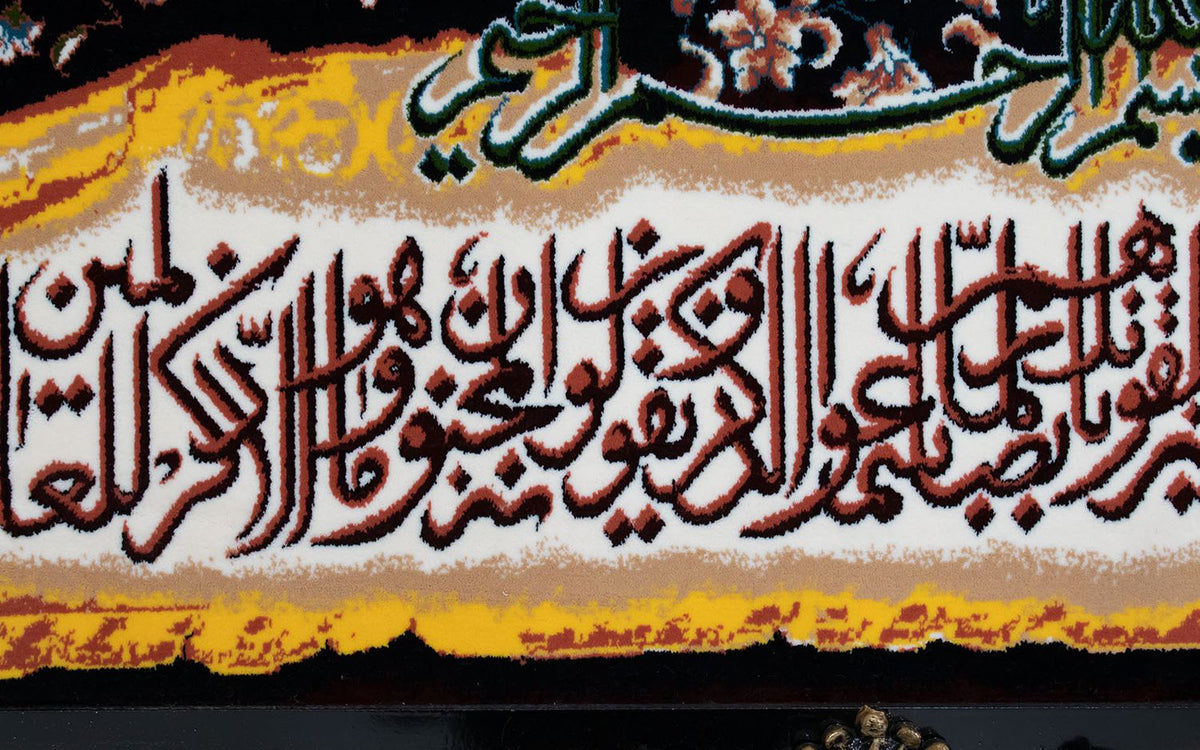 بسم الله الرحمن الرحيم
بابصارهم لما سمعوا الذکر و یقولون انه لمجنون و ما هو الا ذکر للعالمین